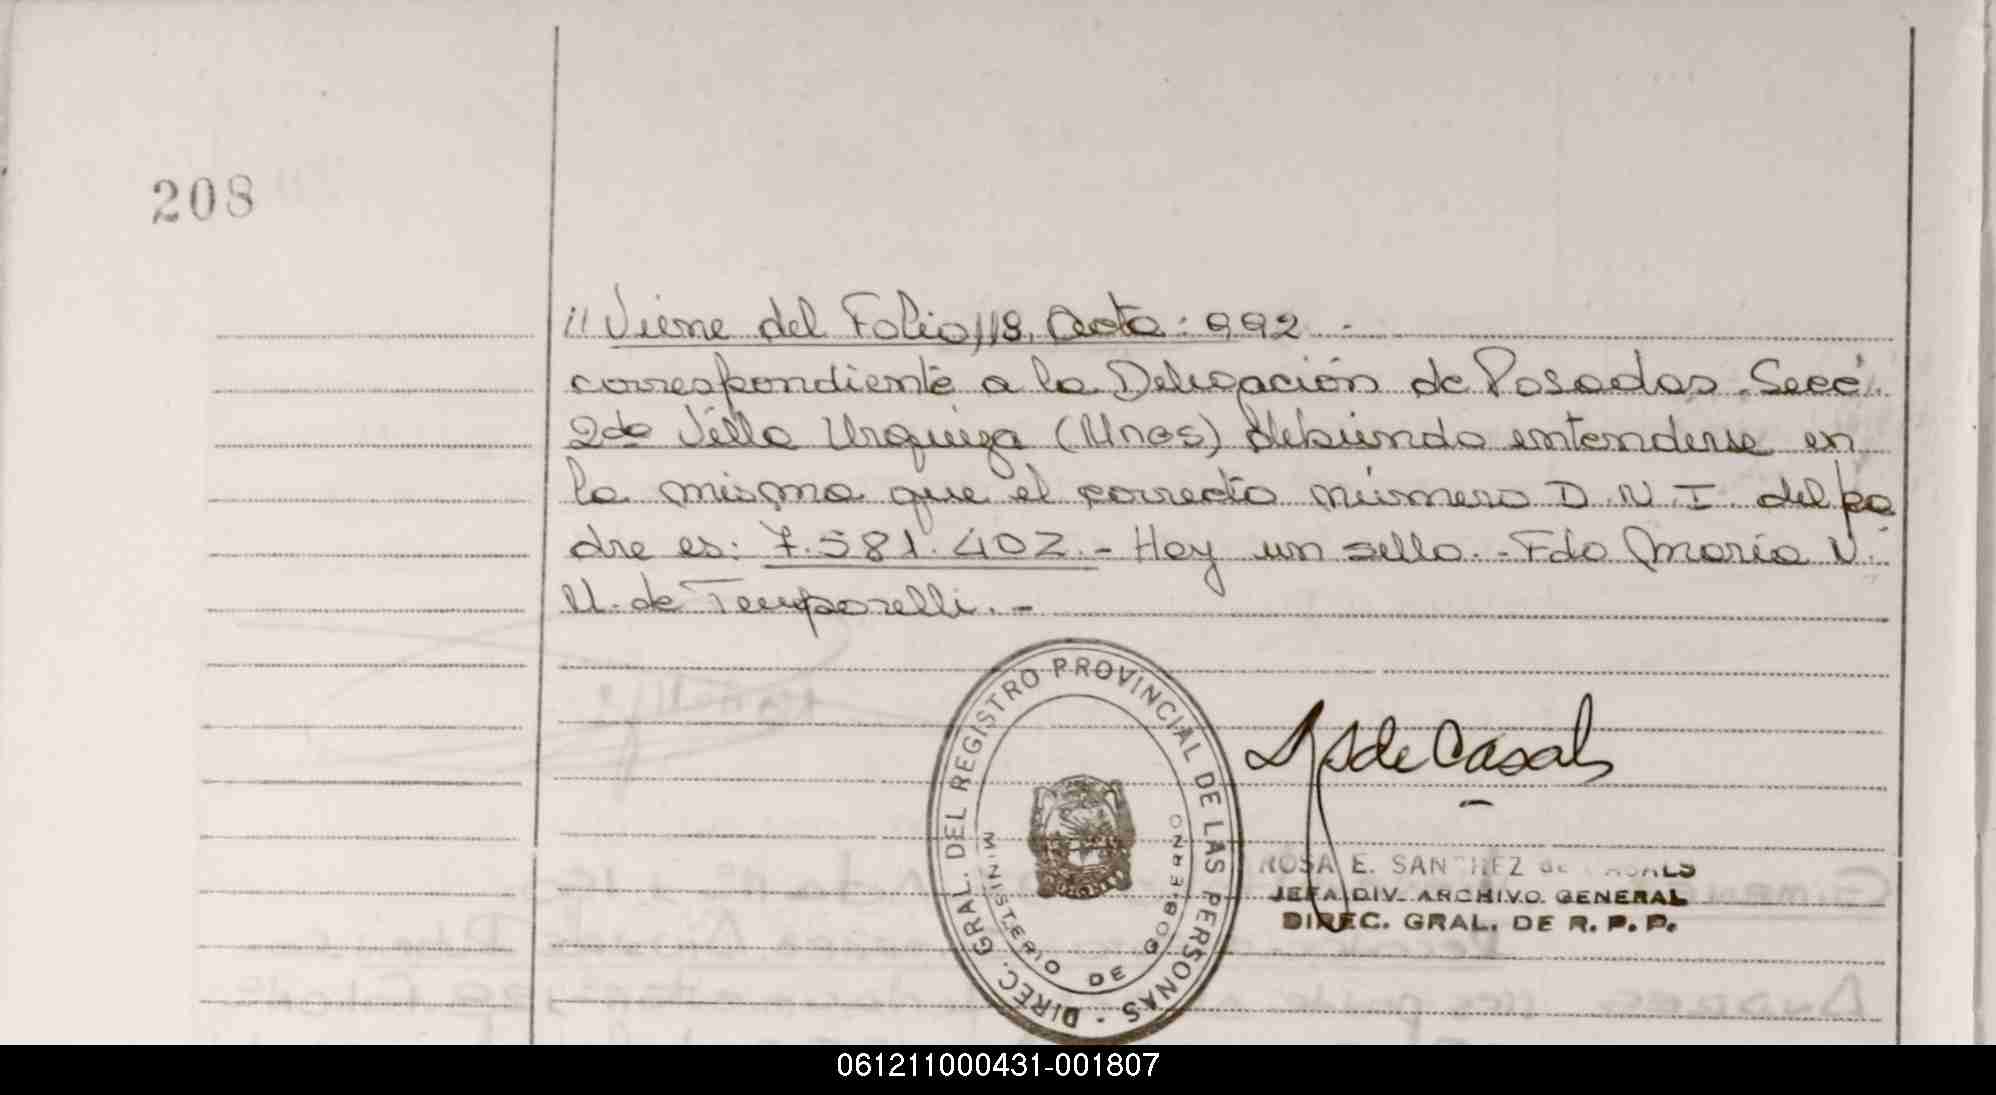 208
// Viene del Folio 118, Acta: 992 -
correspondiente a la Delegación de Posadas. Secc.
2da Villa Urquiza (Mnes) debiendo entenderse en
la misma que el correcto número D.N.I. del pa
dre es: 7.581.402. - Hay un sello. - Fdo Maria N.
U. de Temporelli. -
DIREC. GRAL. DEL REGISTRO PROVINCIAL DE LAS PERSONAS -
MINISTERIO DE GOBIERNO
de Casals
ROSA E. SANCHEZ de CASALS
JEFA DIV. ARCHIVO GENERAL
DIREC. GRAL. DE R. P. P.
061211000431-001807